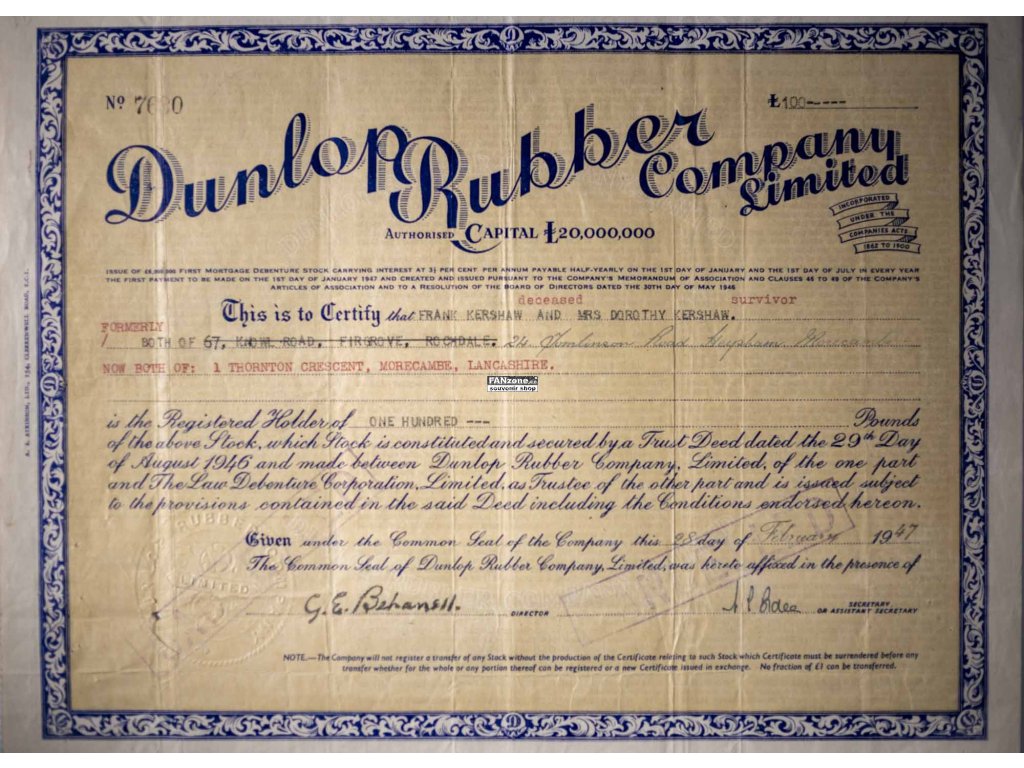 Nº 7680 £100-----
Dunlop Rubber Company Limited
INCORPORATED
UNDER THE
COMPANIES ACTS
1862 TO 1900
AUTHORISED CAPITAL £20,000,000
ISSUE OF £6,000,000 FIRST MORTGAGE DEBENTURE STOCK CARRYING INTEREST AT 3½ PER CENT. PER ANNUM PAYABLE HALF-YEARLY ON THE 1ST DAY OF JANUARY AND THE 1ST DAY OF JULY IN EVERY YEAR
THE FIRST PAYMENT TO BE MADE ON THE 1ST DAY OF JANUARY 1947 AND CREATED AND ISSUED PURSUANT TO THE COMPANY'S MEMORANDUM OF ASSOCIATION AND CLAUSES 46 TO 49 OF THE COMPANY'S
ARTICLES OF ASSOCIATION AND TO A RESOLUTION OF THE BOARD OF DIRECTORS DATED THE 30TH DAY OF MAY 1946
deceased survivor
This is to Certify that FRANK KERSHAW AND MRS DOROTHY KERSHAW.
FORMERLY
BOTH OF 67, KNOWL ROAD, FIRGROVE, ROCHDALE. 24 Tomlinson Road Heysham Morecambe
NOW BOTH OF: 1 THORNTON CRESCENT, MORECAMBE, LANCASHIRE.
FANzone.cz
souvenir shop
is the Registered Holder of ONE HUNDRED --- Pounds
of the above Stock, which Stock is constituted and secured by a Trust Deed dated the 29th Day
of August 1946 and made between Dunlop Rubber Company, Limited, of the one part
and The Law Debenture Corporation, Limited, as Trustee of the other part and is issued subject
to the provisions contained in the said Deed including the Conditions endorsed hereon.
Given under the Common Seal of the Company this 28 day of February 1947
The Common Seal of Dunlop Rubber Company, Limited, was hereto affixed in the presence of
G. E. Beharrell. DIRECTOR SECRETARY
OR ASSISTANT SECRETARY
RUBBER
LIMITED
NOTE.—The Company will not register a transfer of any Stock without the production of the Certificate relating to such Stock which Certificate must be surrendered before any
transfer whether for the whole or any portion thereof can be registered or a new Certificate issued in exchange. No fraction of £1 can be transferred.